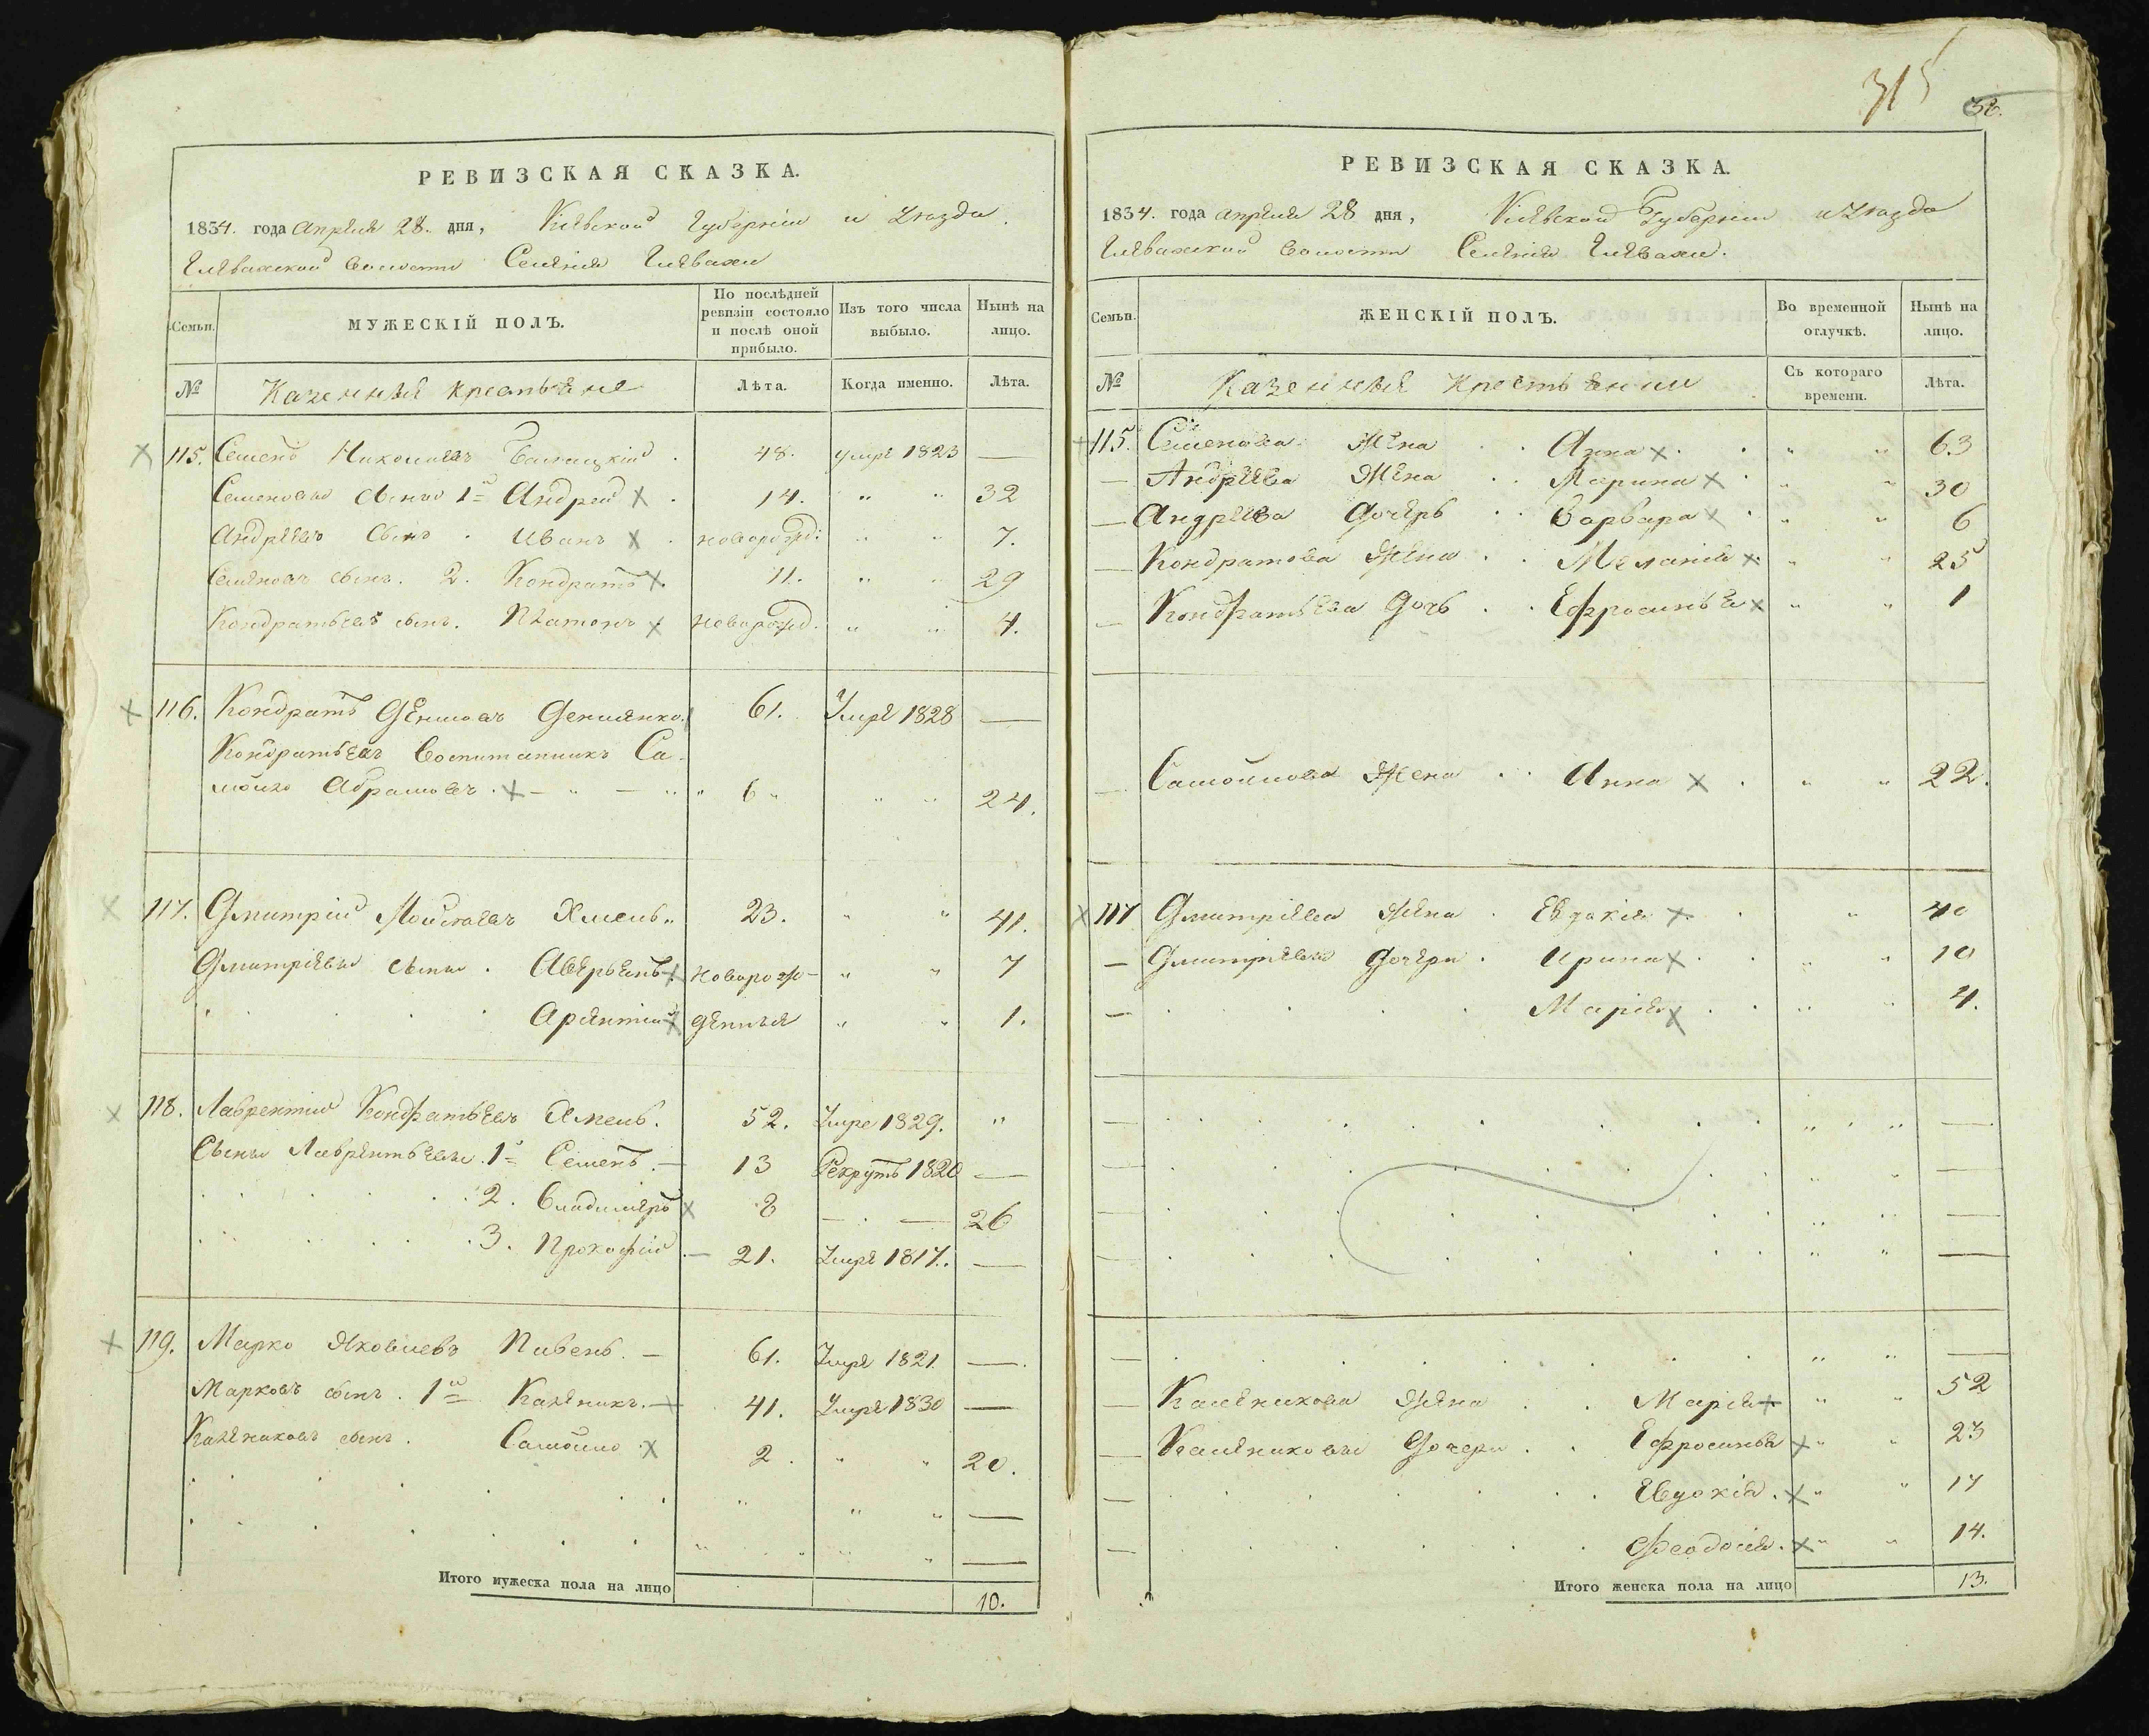 РЕВИЗСКАЯ СКАЗКА.
1834. года Апреля 28. дня, Кіевской Губерніи и Уезда.
Глевахской Волости Селенія Глевахи
Семьи. МУЖЕСКІЙ ПОЛЪ. По послѣдней ревизіи состояло и послѣ оной прибыло. Изъ того числа выбыло. Нынѣ на лицо.
№ Казенныя крестьяне Лѣта. Когда именно. Лѣта.
115. Семенъ Николаевъ 48. умре 1823 —
Семеновы сыны 1й Андрей 14. " " 32
Андреевъ сынъ Иванъ новорожд: " " 7.
Семеновъ сынъ. 2. Кондратъ 11. " " 29
Кондратьевъ сынъ. Платонъ новорожд. " " 4.
116. Кондратъ Денисовъ Денисенко. 61. Умре 1828 —
Кондратьевъ Воспитанникъ Са-
мойло Абрамовъ. 6 " " 24.
117. Дмитрій Мойсеевъ Хмель 23. " " 41.
Дмитріевы сыны. Аверьянъ новорож- " " 7
Арентій денныя " " 1.
118. Лаврентій Кондратьевъ Хмель. 52. Умре 1829. "
Сыны Лаврентьевы. 1й Семенъ. — 13 Рекрутъ 1820 —
2. Владимеръ 8 — — 26
3. Прокофій — 21. Умре 1817. —
119. Марко Яковлевъ Пивень. — 61. Умре 1821. —
Марковъ сынъ. 1й Каленикъ. — 41. Умре 1830 —
Калениковъ сынъ. Самойло 2. " " 20.
" " " —
" " " " —
Итого мужеска пола на лицо 10.
315
32.
РЕВИЗСКАЯ СКАЗКА.
1834. года Апреля 28 дня, Кіевской Губерніи и Уезда
Глевахской Волости Селенія Глевахи.
Семьи. ЖЕНСКІЙ ПОЛЪ. Во временной отлучкѣ. Нынѣ на лицо.
№ Казенныя Крестьянки Съ котораго времени. Лѣта.
115. Семенова Жена Анна " " 63
— Андреева Жена Марина " " 30
— Андреева Дочерь Варвара " " 6
— Кондратова Жена Меланія " " 25
— Кондратьева Дочь Ефросинья " " 1
— Самойлова Жена Анна " " 22.
117 Дмитріева Жена Евдокія " 40
— Дмитріевы Дочери Ирина " " 10
— Марія " " 4.
— " " —
— " " —
— " " —
— " " —
— " " —
Каленикова Жена Марія " " 52
— Калениковы Дочери Ефросинья " " 23
— Евдокія. " " 17
— Феодосія. " " 14.
Итого женска пола на лицо 13.